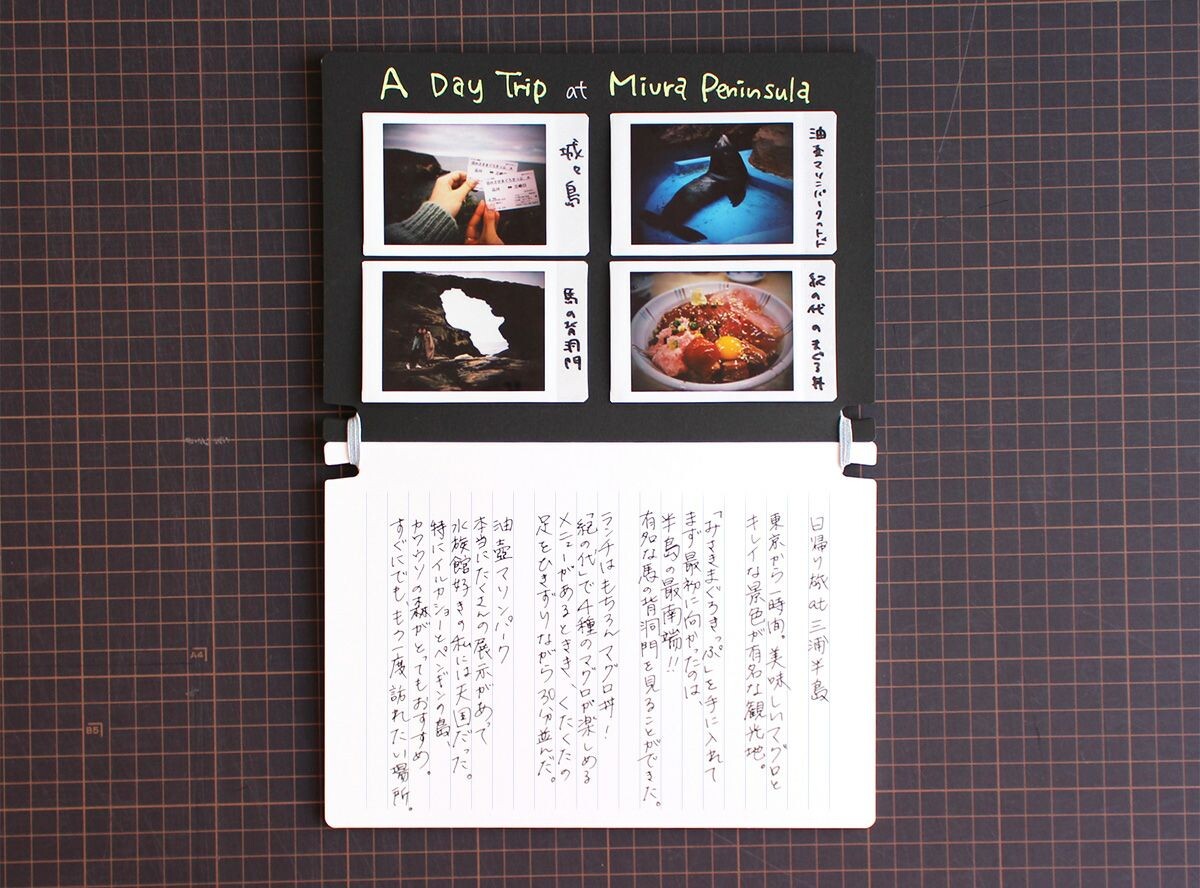 A Day Trip at Miura Peninsula
城ヶ島
油壺マリンパークのトド
馬の背洞門
紀の代のまぐろ丼
日帰り旅at三浦半島
東京から一時間。美味しいマグロと
キレイな景色が有名な観光地。
「みさきまぐろきっぷ」を手に入れて
まず最初に向かったのは、
半島の最南端!!
有名な馬の背洞門を見ることができた。
ランチはもちろんマグロ丼!
「紀の代」で4種のマグロが楽しめる
メニューがあるときき、くたくたの
足をひきずりながら30分並んだ。
油壺マリンパーク
本当にたくさんの展示があって
水族館好きの私には天国だった。
特にイルカショーとペンギンの島、
カワウソの森がとってもおすすめ。
すぐにでも、もう一度訪れたい場所。
A4
B5